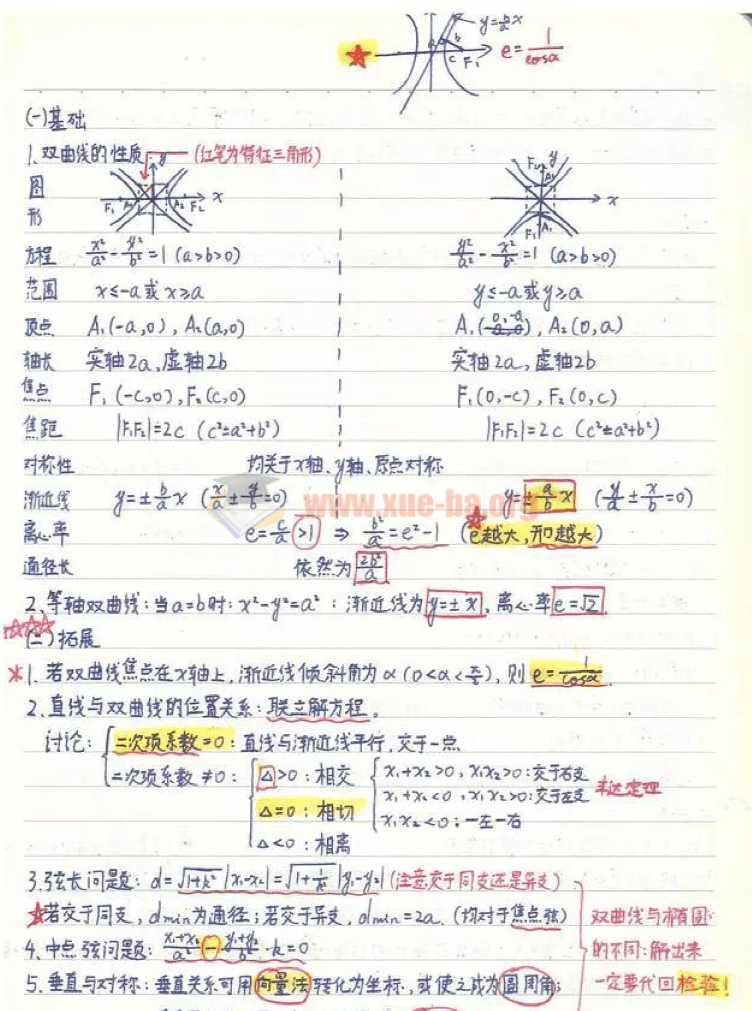 y=b/a x
★ a b c F₁ e=1/cosα
(一)基础
1.双曲线的性质 (红笔为特征三角形)
图形 F₁ A₁ A₂ F₂ x y F₂ A₂ x F₁ A₁ y
方程 x²/a²-y²/b²=1 (a>b>0) y²/a²-x²/b²=1 (a>b>0)
范围 x≤-a或x≥a y≤-a或y≥a
顶点 A₁(-a,0),A₂(a,0) A₁(0,-a),A₂(0,a)
轴长 实轴2a,虚轴2b 实轴2a,虚轴2b
焦点 F₁(-c,0),F₂(c,0) F₁(0,-c),F₂(0,c)
焦距 |F₁F₂|=2c (c²=a²+b²) |F₁F₂|=2c (c²=a²+b²)
对称性 均关于x轴、y轴、原点对称
渐近线 y=±b/a x (x/a±y/b=0) y=±a/b x (y/a±x/b=0)
www.xue-ba.org
离心率 e=c/a>1 ⇒ b²/a²=e²-1 (★e越大,开口越大)
通径长 依然为2b²/a
2.等轴双曲线:当a=b时:x²-y²=a²:渐近线为y=±x,离心率e=√2.
☆☆☆
(二)拓展
*1.若双曲线焦点在x轴上,渐近线倾斜角为α(0<α<π/2),则e=1/cosα
2.直线与双曲线的位置关系:联立解方程。
讨论:二次项系数=0:直线与渐近线平行,交于一点.
二次项系数≠0: △>0:相交 x₁+x₂>0,x₁x₂>0:交于右支
x₁+x₂<0,x₁x₂>0:交于左支 韦达定理
△=0:相切 x₁x₂<0:一左一右
△<0:相离
3.弦长问题:d=√(1+k²)|x₁-x₂|=√(1+1/k²)|y₁-y₂|(注意交于同支还是异支)
★若交于同支,dmin为通径;若交于异支,dmin=2a.(均对于焦点弦)
4.中点弦问题:(x₁+x₂)/a²-(y₁+y₂)/b²·k=0
5.垂直与对称:垂直关系可用向量法转化为坐标,或使之成为圆周角;
双曲线与椭圆
的不同:解出来
一定要代回检验!